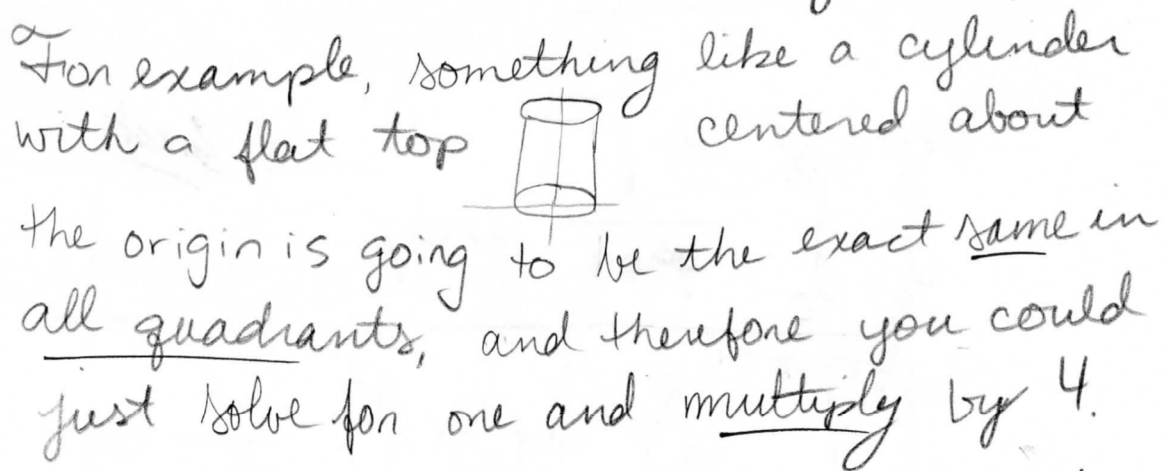 For example, something like a cylinder
with a flat top centered about
the origin is going to be the exact same in
all quadrants, and therefore you could
just solve for one and multiply by 4.